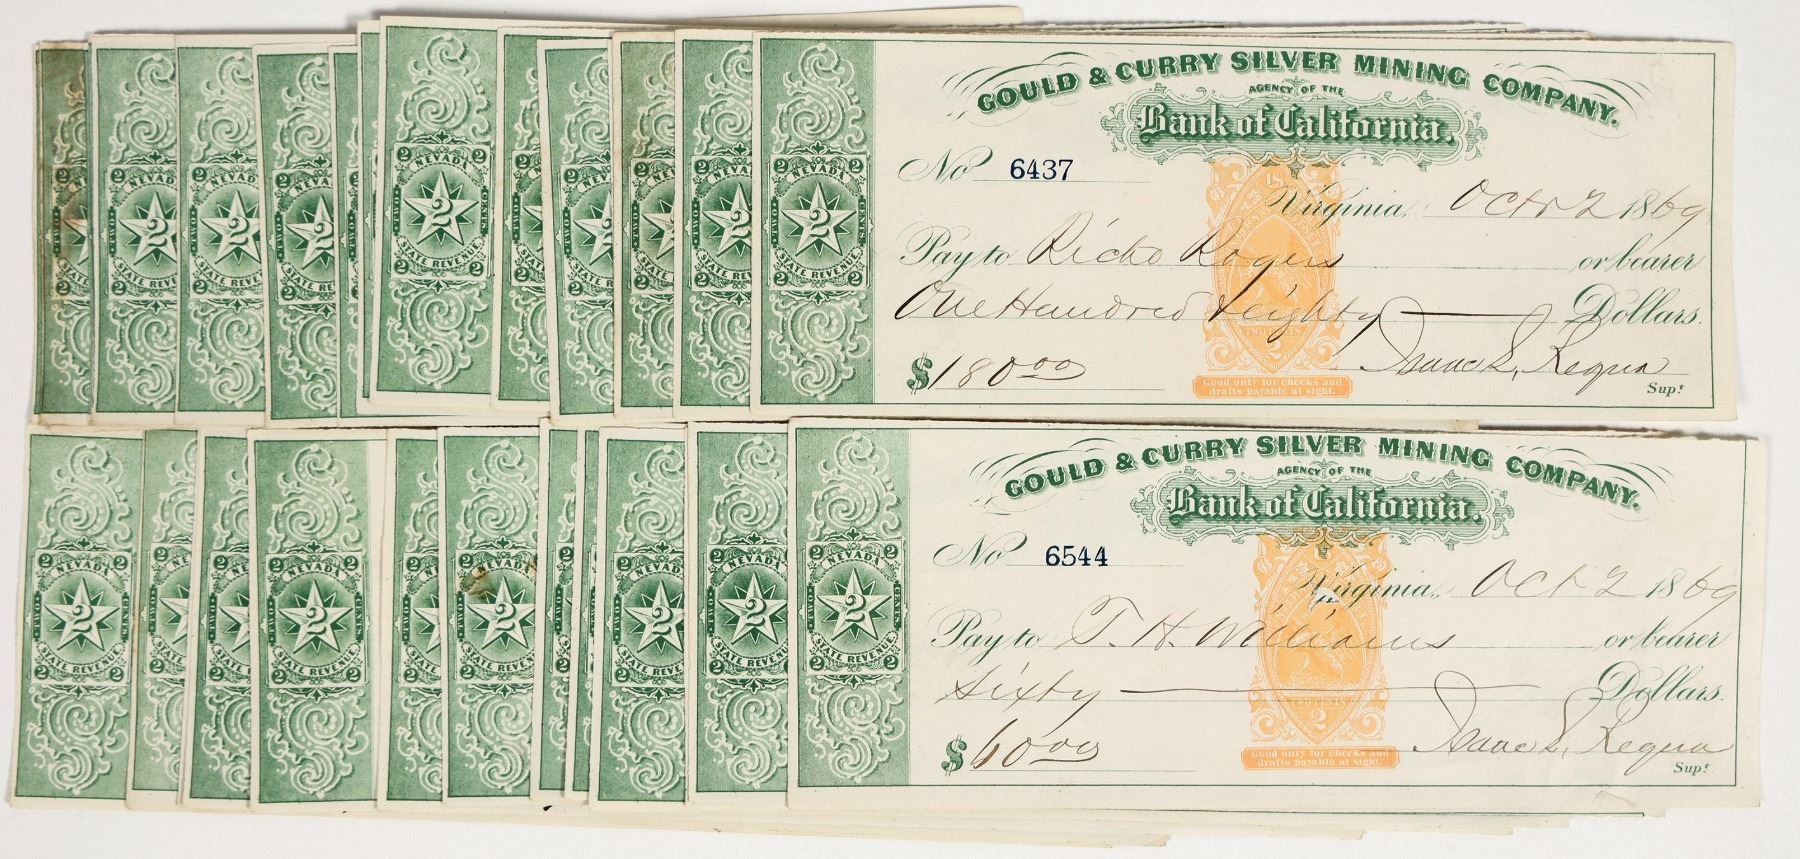 GOULD & CURRY SILVER MINING COMPANY.
AGENCY OF THE
Bank of California.
No 6437
Virginia, Oct 2 1869
Pay to Richd Rogers or bearer
One Hundred & eighty Dollars.
$180 00
Isaac L. Requa
Supt
TWO CENTS
2
Good only for checks and
drafts payable at sight.
2 NEVADA 2
TWO 2 CENTS
2 STATE REVENUE. 2
GOULD & CURRY SILVER MINING COMPANY.
AGENCY OF THE
Bank of California.
No 6544
Virginia, Oct 2 1869
Pay to T. H. Williams or bearer
Sixty Dollars.
$60 00
Isaac L. Requa
Supt
TWO CENTS
2
Good only for checks and
drafts payable at sight.
2 NEVADA 2
TWO 2 CENTS
2 STATE REVENUE. 2